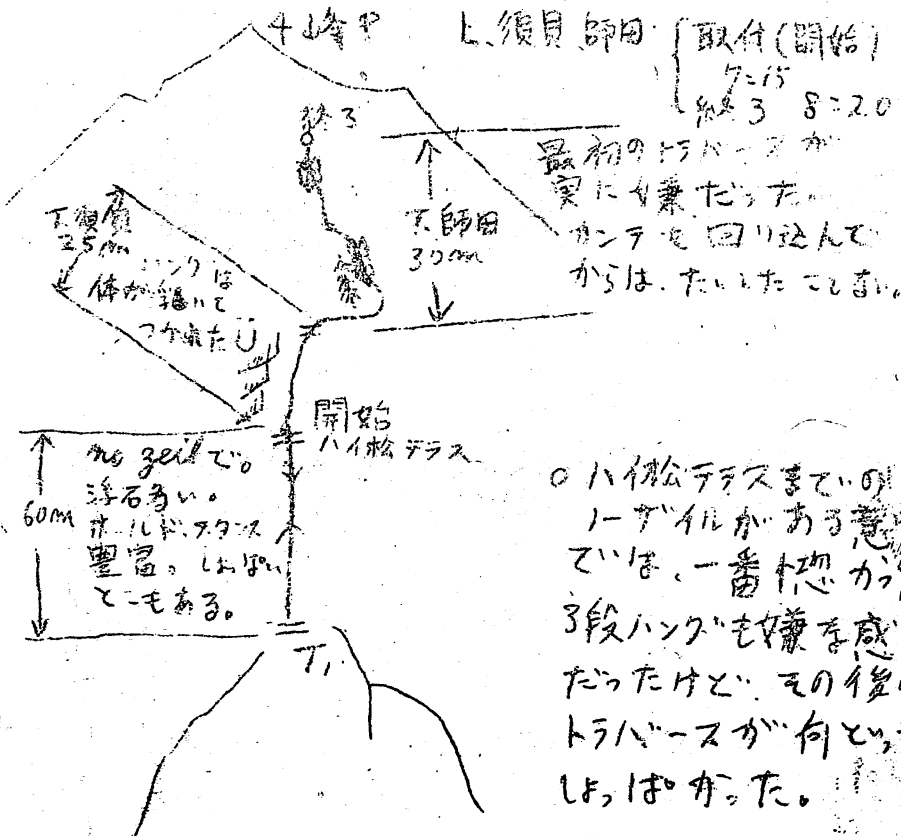 4峰
L.須貝 師田
取付(開始)
7:15
終了 8:20
終了
最初のトラバースが
実に嫌だった。
カンテを回り込んで
からは、たいしたことない。
T.須貝
25m
T.師田
30m
ハングは
体が浮いて
つかれた
開始
ハイ松テラス
60m
no zeilで。
浮石多い。
ホールド、スタンス
豊富。しょっぱい
とこもある。
T1
○ハイ松テラスまでの
ノーザイルがある意
では、一番恐かっ
3段ハングも嫌な感
だったけど、その後
トラバースが何といっ
しょっぱかった。